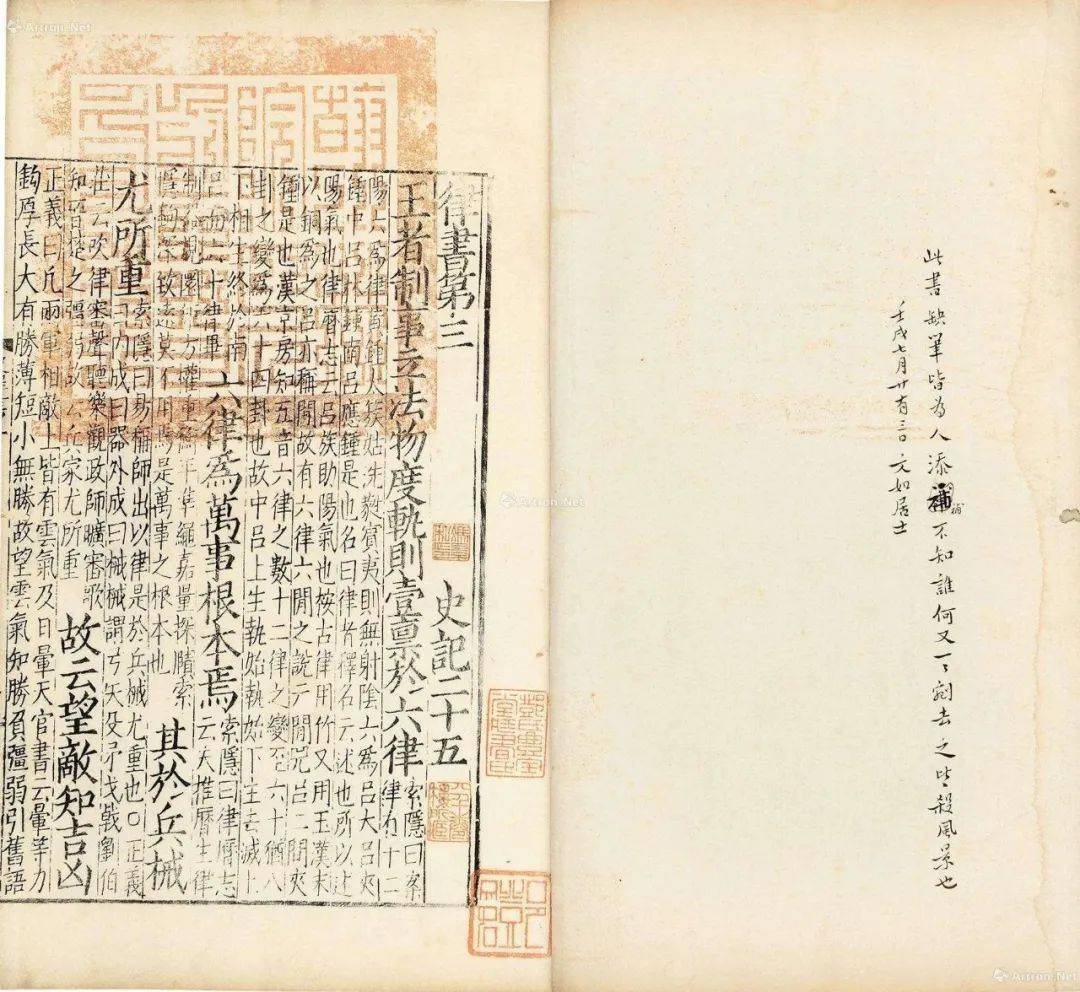 此書缺筆皆為人添補不知誰何又一〻剜去之皆殺風景也
補
壬戌七月廿有三日 文如居士
律書第三 史記二十五
王者制事立法物度軌則壹禀於六律
索隱曰案
律有十二
陽六爲律黄鍾太蔟姑洗蕤賓夷則無射陰六爲呂大呂夾
鍾中呂林鍾南呂應鍾是也名曰律者釋名云述也所以述
陽氣也律曆志云呂旅助陽氣也桉古律用竹又用玉漢末
以銅爲之呂亦稱閒故有六律六閒之說元閒大呂二閒夾
鍾是也漢京房知五音六律之數十二律之變至六十猶八
卦之變爲六十四卦也故中呂上生執始執始下生去滅上
下相生終於南
呂而六十律畢
六律爲萬事根本焉
索隱曰律曆志
云夫推曆生律
制器規圜矩方權重衡平準繩嘉量探賾索
隱鉤深致遠莫不用焉是萬事之根本也
其於兵械
尤所重
索隱曰易稱師出以律是於兵械尤重也○正義
曰内成曰器外成曰械械謂弓矢殳矛戈戟劉伯
莊云吹律審聲聽樂觀政師曠審歌
知晉楚之彊弱故云兵家尤所重
故云望敵知吉凶
正義曰凡兩軍相敵上皆有雲氣及日暈天官書云暈等力
鈎厚長大有勝薄短小無勝故望雲氣知勝負彊弱引舊語
Artron.Net
Artron.Net
Artron.Net